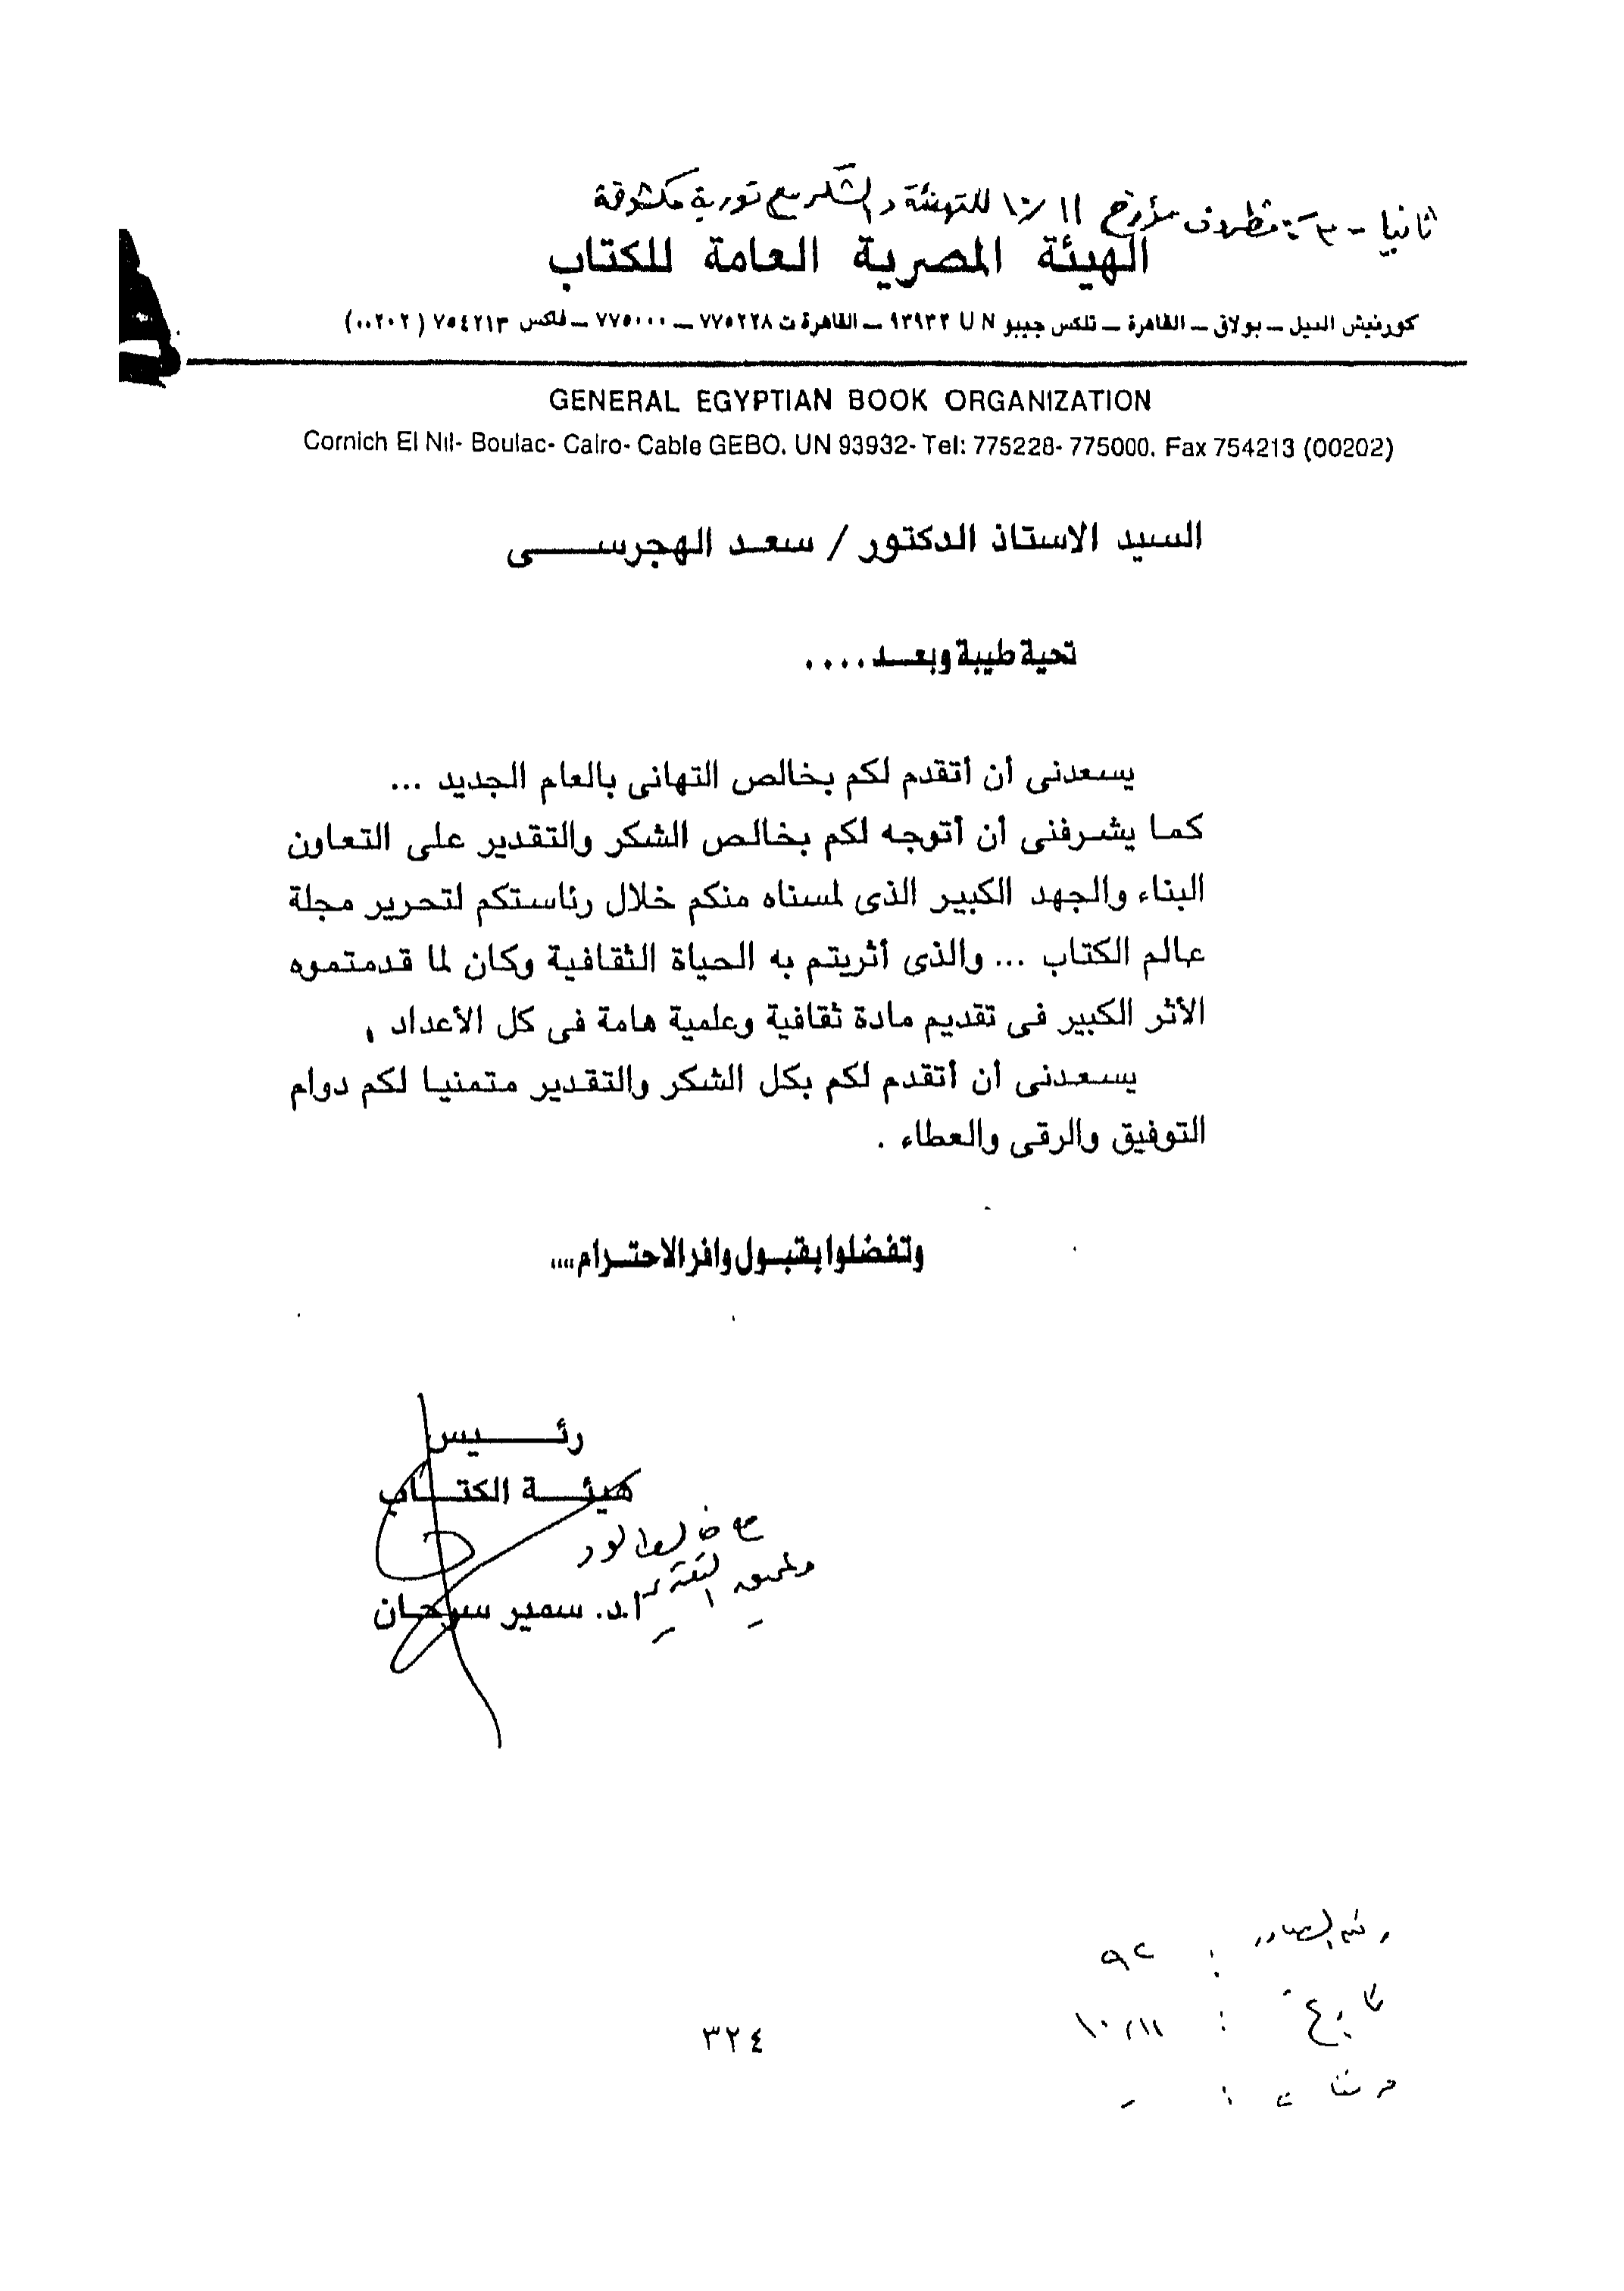 ثانيا - ٣ - مظروف مؤرخ ١٠/١١ للتهنئة والشكر مع تورية مكشوفة
الهيئة المصرية العامة للكتاب
كورنيش النيل – بولاق – القاهرة – تلكس جيبو U N ٩٣٩٣٢ – القاهرة ت ٧٧٥٢٢٨ – ٧٧٥٠٠٠ – فاكس ٧٥٤٢١٣ (٠٠٢٠٢)
GENERAL EGYPTIAN BOOK ORGANIZATION
Cornich El Nil- Boulac- Cairo- Cable GEBO. UN 93932- Tel: 775228- 775000. Fax 754213 (00202)
السيد الاستاذ الدكتور / سعد الهجرسى
تحية طيبة وبعد ....
يسعدنى أن أتقدم لكم بخالص التهانى بالعام الجديد ...
كما يشرفنى أن أتوجه لكم بخالص الشكر والتقدير على التعاون
البناء والجهد الكبير الذى لمسناه منكم خلال رئاستكم لتحرير مجلة
عالم الكتاب ... والذى أثريتم به الحياة الثقافية وكان لما قدمتموه
الأثر الكبير فى تقديم مادة ثقافية وعلمية هامة فى كل الأعداد ,
يسعدنى أن أتقدم لكم بكل الشكر والتقدير متمنيا لكم دوام
التوفيق والرقى والعطاء .
وتفضلوا بقبول وافر الاحترام ....
رئيس
هيئة الكتاب
مع خالص الود
وعميق التقدير
أ.د. سمير سرحان
رقم الصادر : ٩٢
تاريخ : ١٠/١١
مرفقات : -
٣٢٤